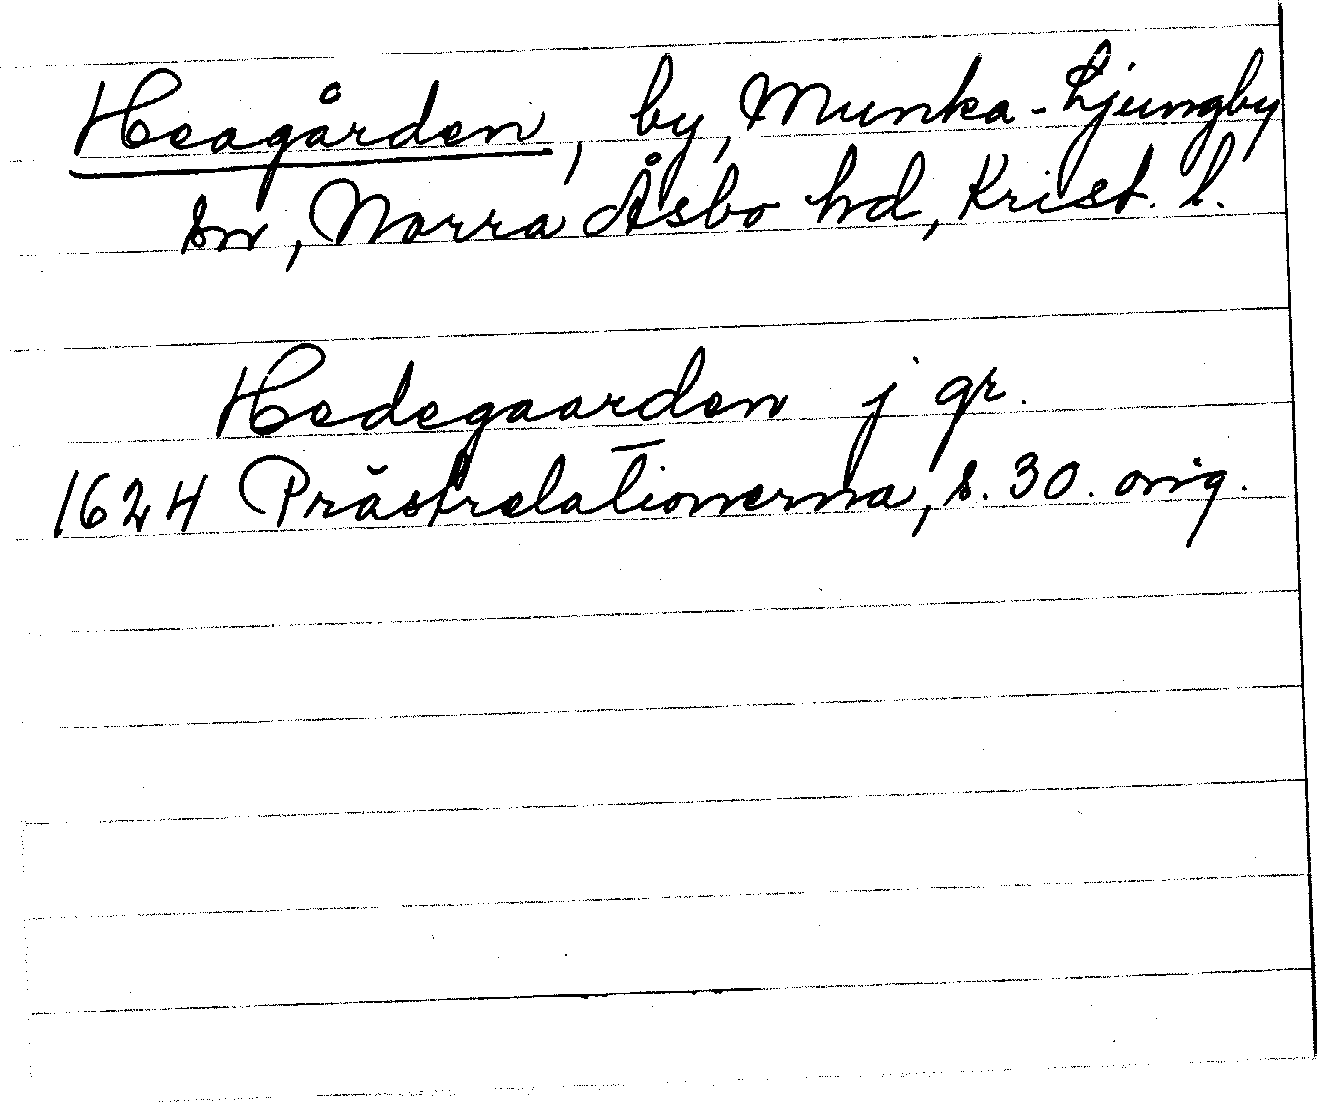 Heagården, by, Munka-Ljungby
sn, Norra Åsbo hd, Krist. l.
Hedegaarden j gr.
1624 Prästrelationerna, s. 30. orig.